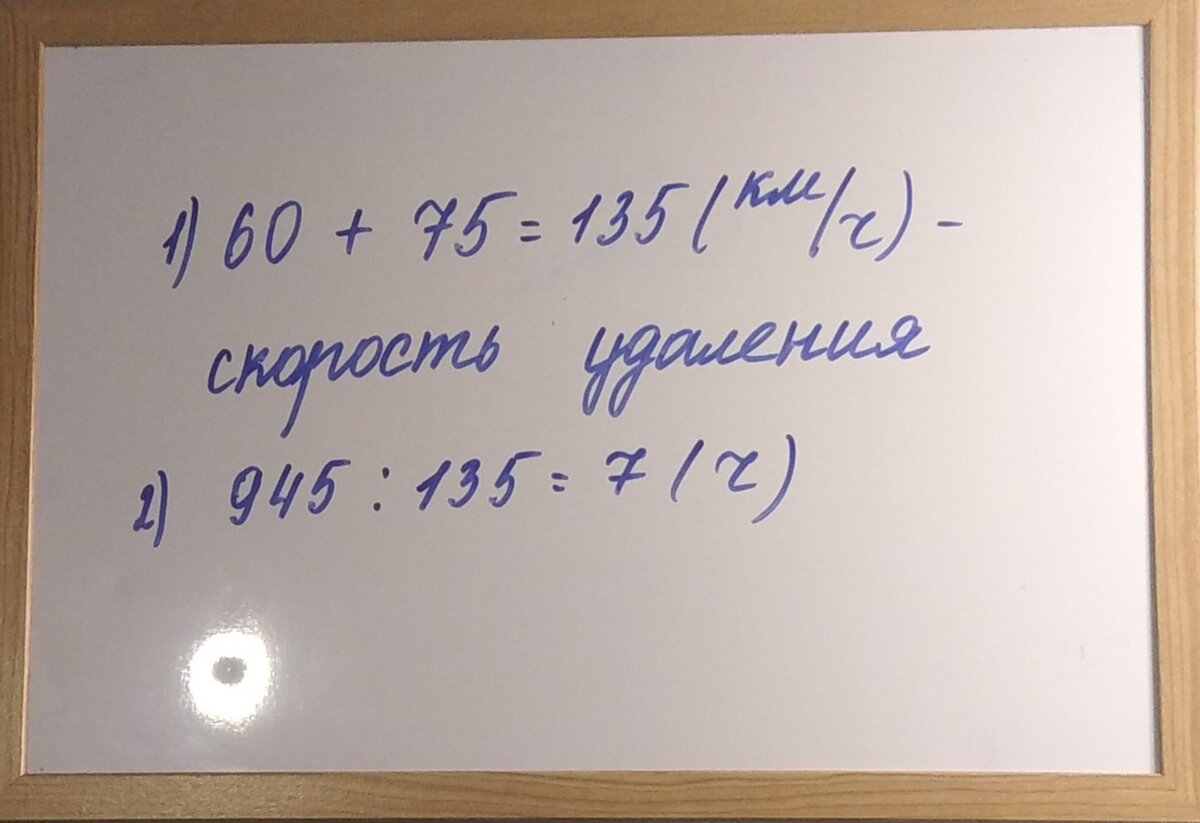 1) 60 + 75 = 135 (км/ч) -
скорость удаления
2) 945 : 135 = 7 (ч)